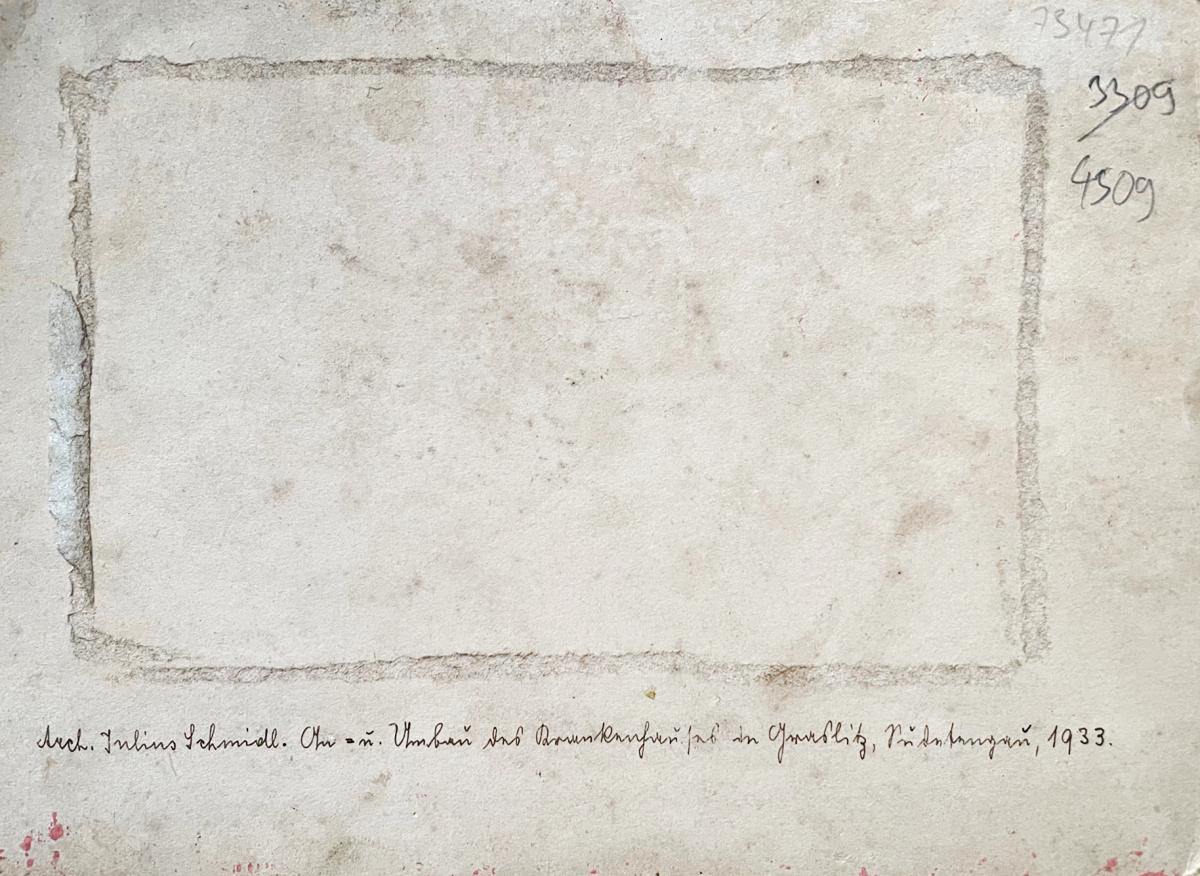 73471
3309
4509
Arch. Julius Schmidl. An=u. Umbau des Krankenhauses in Graslitz, Sudetengau, 1933.